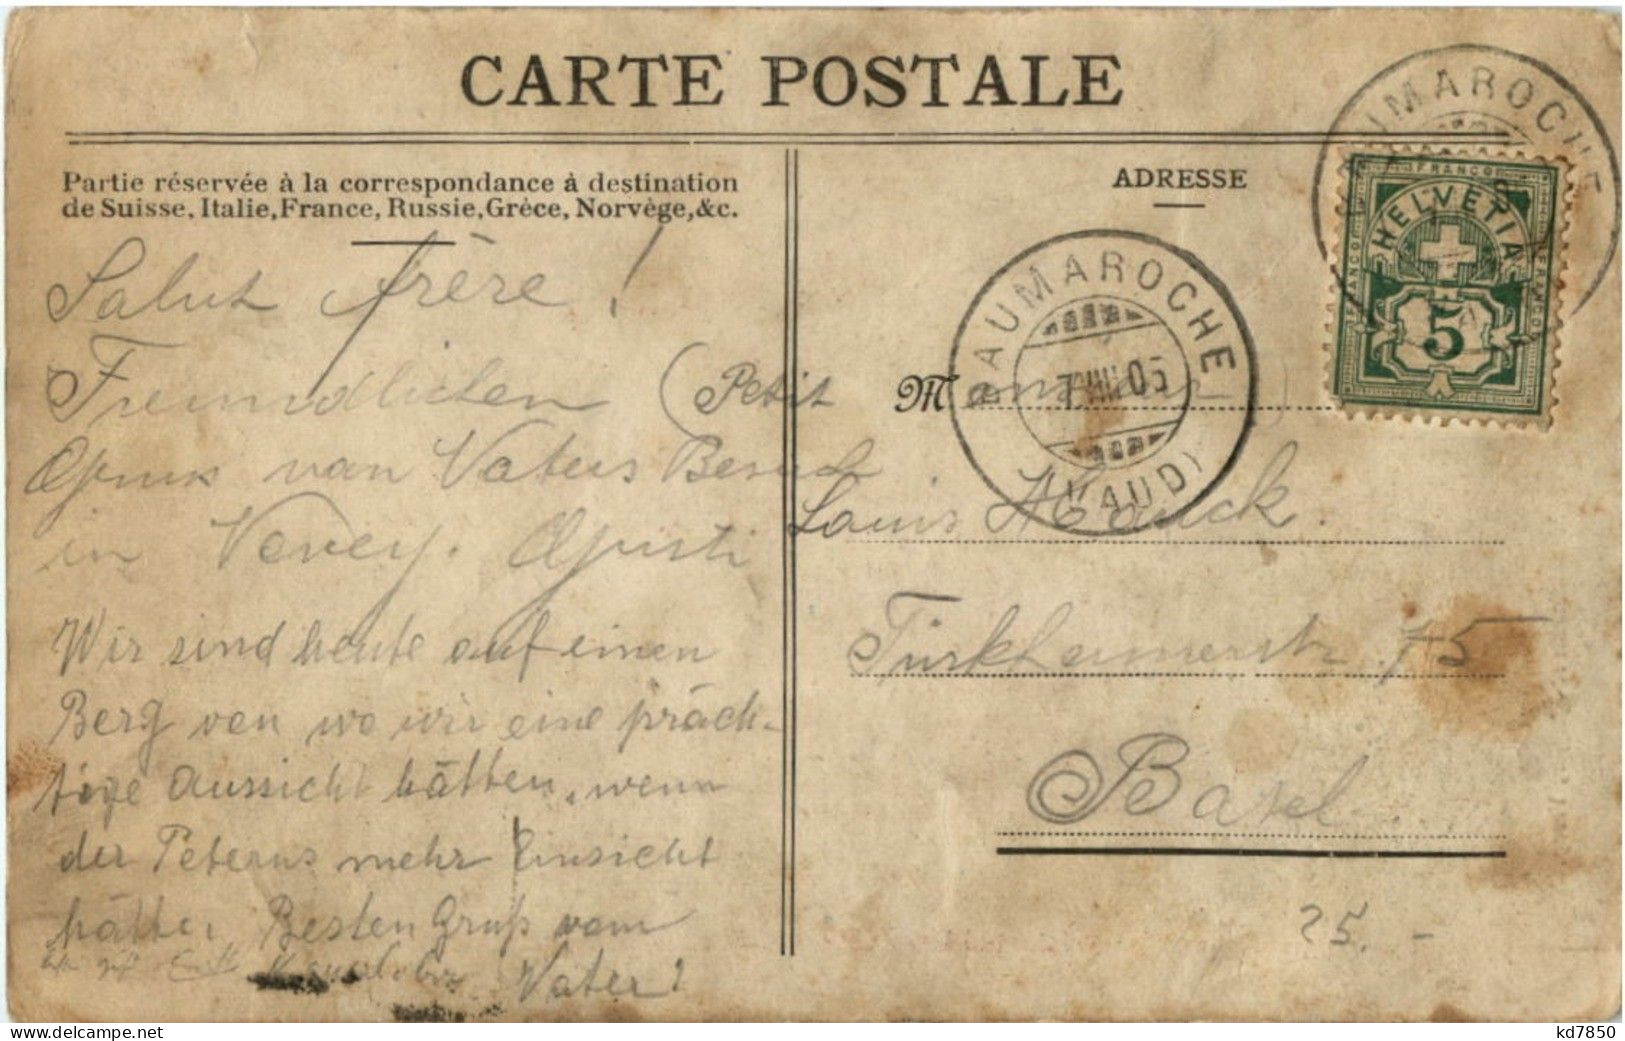 CARTE POSTALE
Partie réservée à la correspondance à destination
de Suisse, Italie, France, Russie, Grèce, Norvège, &c.
Salut frère !
Freundlichen (Petit
van Vaters Besuch
in Vevey.
Wir sind heute auf einen
Berg von wo wir eine präch-
tige Aussicht hätten, wenn
der Peterus mehr Einsicht
hätte. Besten Gruß vom
Vater!
ADRESSE
BAUMAROCHE
(VAUD)
VIII 05
BAUMAROCHE
FRANCO
HELVETIA
FRANCO
FRANCO
5
M
Louis Hauck.
Türkheimerstr. 75
Basel
25.-
kd7850